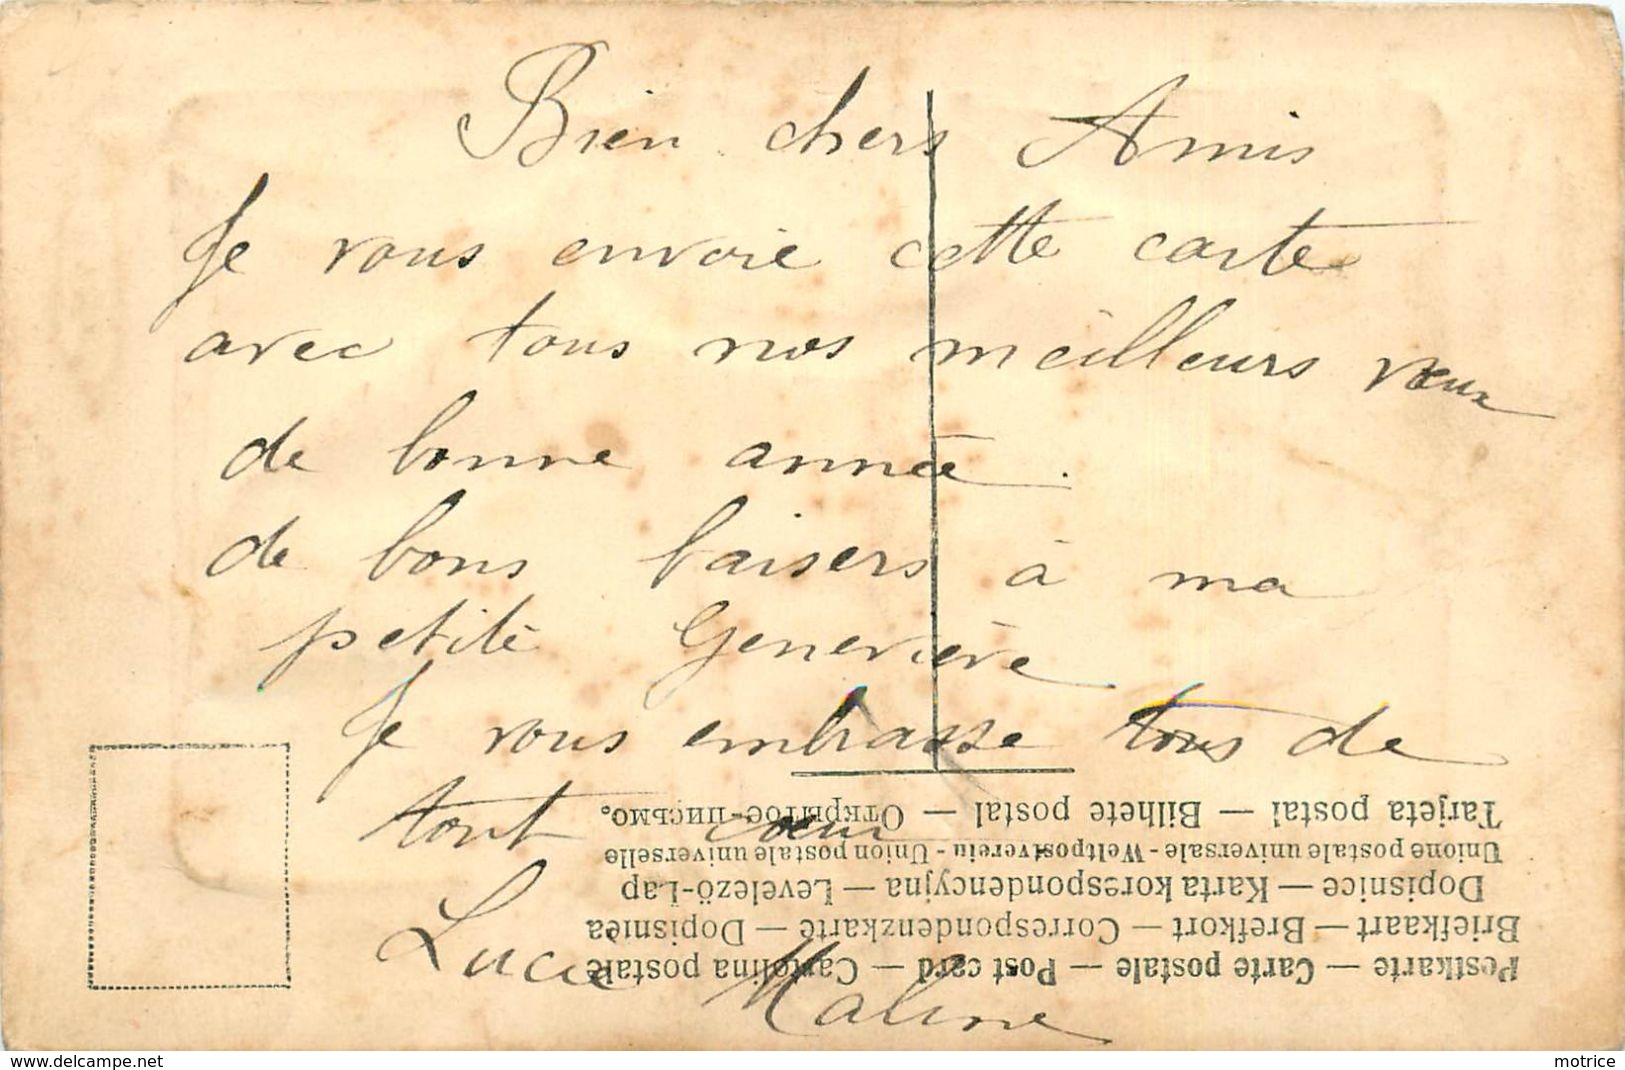 Bien chers Amis
Je vous envoie cette carte
avec tous nos meilleurs vœux
de bonne année.
de bons baisers à ma
petite Geneviève
Je vous embrasse tous de
tout cœur
Lucie Maline
Postkarte — Carte postale — Post card — Cartolina postale
Briefkaart — Brefkort — Correspondenzkarte — Dopisnica
Dopisnice — Karta korespondencyjna — Levelező-Lap
Unione postale universale - Weltpostverein - Union postale universelle
Tarjeta postal — Bilhete postal — Открытое-письмо.
www.delcampe.net
motrice